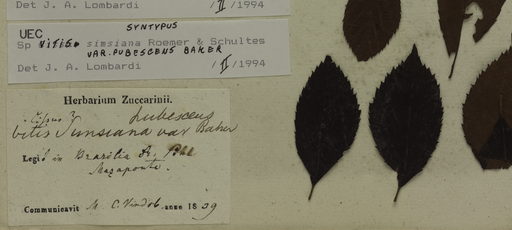 Det J. A. Lombardi /II/1994
SYNTYPUS
UEC
Sp Vitis simsiana Roemer & Schultes
VAR. PUBESCENS BAKER
Det J. A. Lombardi /II/1994
Herbarium Zuccarinii.
pubescens
Vitis Simsiana var Baker
Legit in Brasilia Dr. Pohl
Communicavit M. C. Vindob. anno 1839